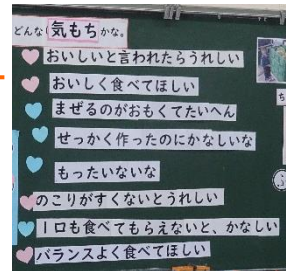 どんな気もちかな。
おいしいと言われたらうれしい
おいしく食べてほしい
まぜるのがおもくてたいへん
せっかく作ったのにかなしいな
もったいないな
のこりがすくないとうれしい
一口も食べてもらえないと、かなしい
バランスよく食べてほしい